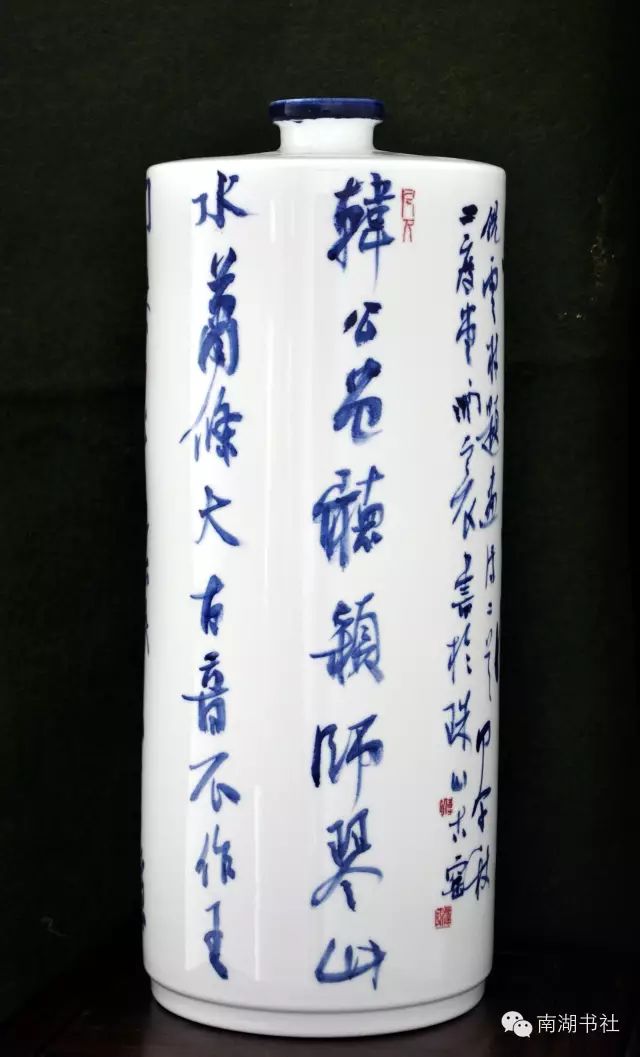 韓公曾聽穎師琴山
水蕭條大古音不作王
倪雲林題畫詩二首甲午秋
書於珠山古窯
南湖书社